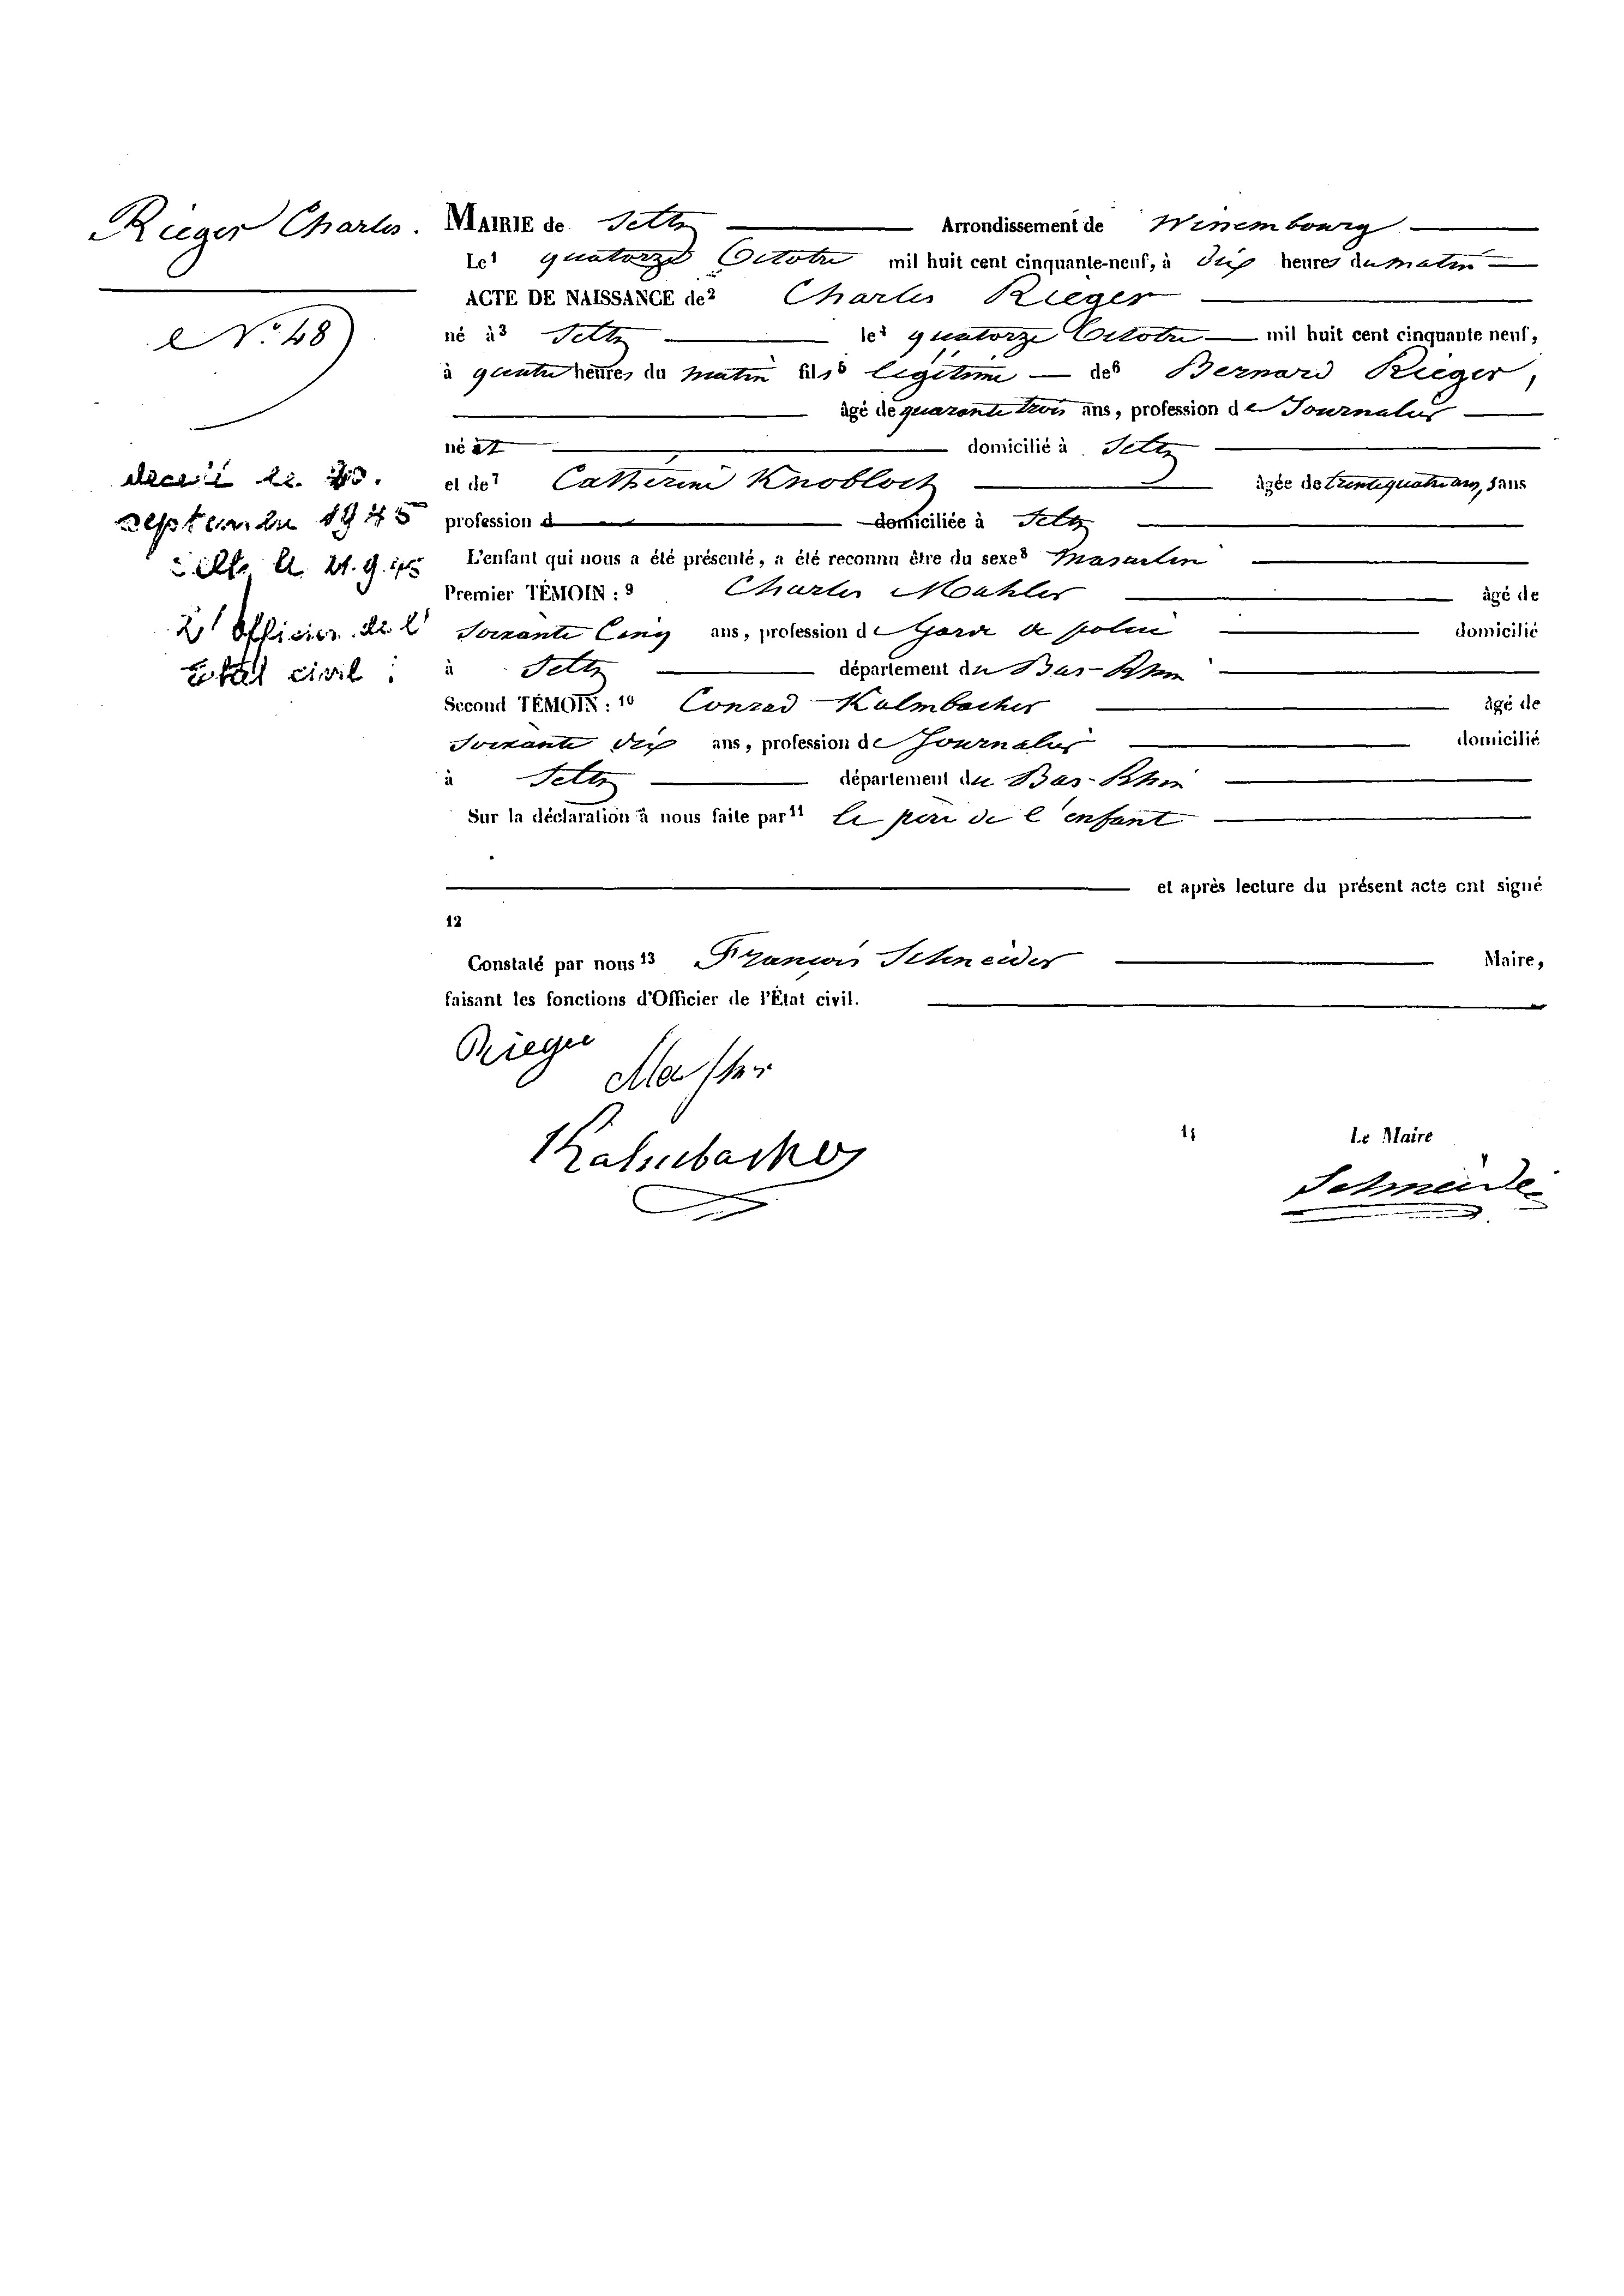 Rieger Charles.
N° 48
décédé le 20.
septembre 1945
Seltz le 21.9.45
L'Officier de l'
état civil :
MAIRIE de Seltz Arrondissement de Wissembourg
Le¹ quatorze Octobre mil huit cent cinquante-neuf, à dix heures du matin
ACTE DE NAISSANCE de² Charles Rieger
né à³ Seltz le⁴ quatorze Octobre mil huit cent cinquante neuf,
à quatre heures du matin fils⁵ légitime de⁶ Bernard Rieger,
âgé de quarante trois ans, profession de Journalier
né à domicilié à Seltz
et de⁷ Catherine Knobloch âgée de trente quatre ans, sans
profession d domiciliée à Seltz
L'enfant qui nous a été présenté, a été reconnu être du sexe⁸ masculin
Premier TÉMOIN : ⁹ Charles Mahler âgé de
Soixante Cinq ans, profession de Garde de police domicilié
à Seltz département du Bas-Rhin
Second TÉMOIN : ¹⁰ Conrad Kalmbacher âgé de
Soixante dix ans, profession de Journalier domicilié
à Seltz département du Bas-Rhin
Sur la déclaration à nous faite par¹¹ le père de l'enfant
et après lecture du présent acte ont signé
12
Constaté par nous¹³ François Schneider Maire,
faisant les fonctions d'Officier de l'État civil.
Rieger
Mahler
Kalmbacher
14 Le Maire
Schneider